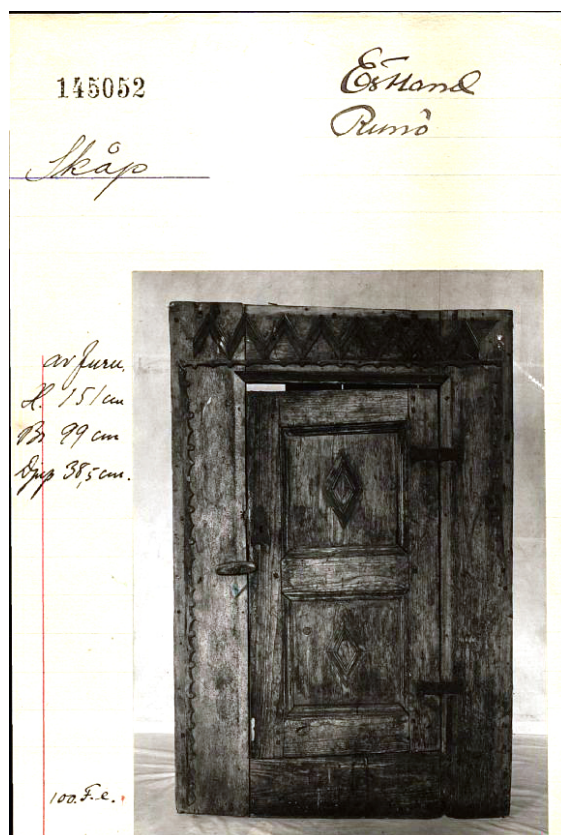 145052
Estland
Runö
Skåp
av furu,
H. 151 cm
Br 99 cm
Djup 38,5 cm.
100. F. e.